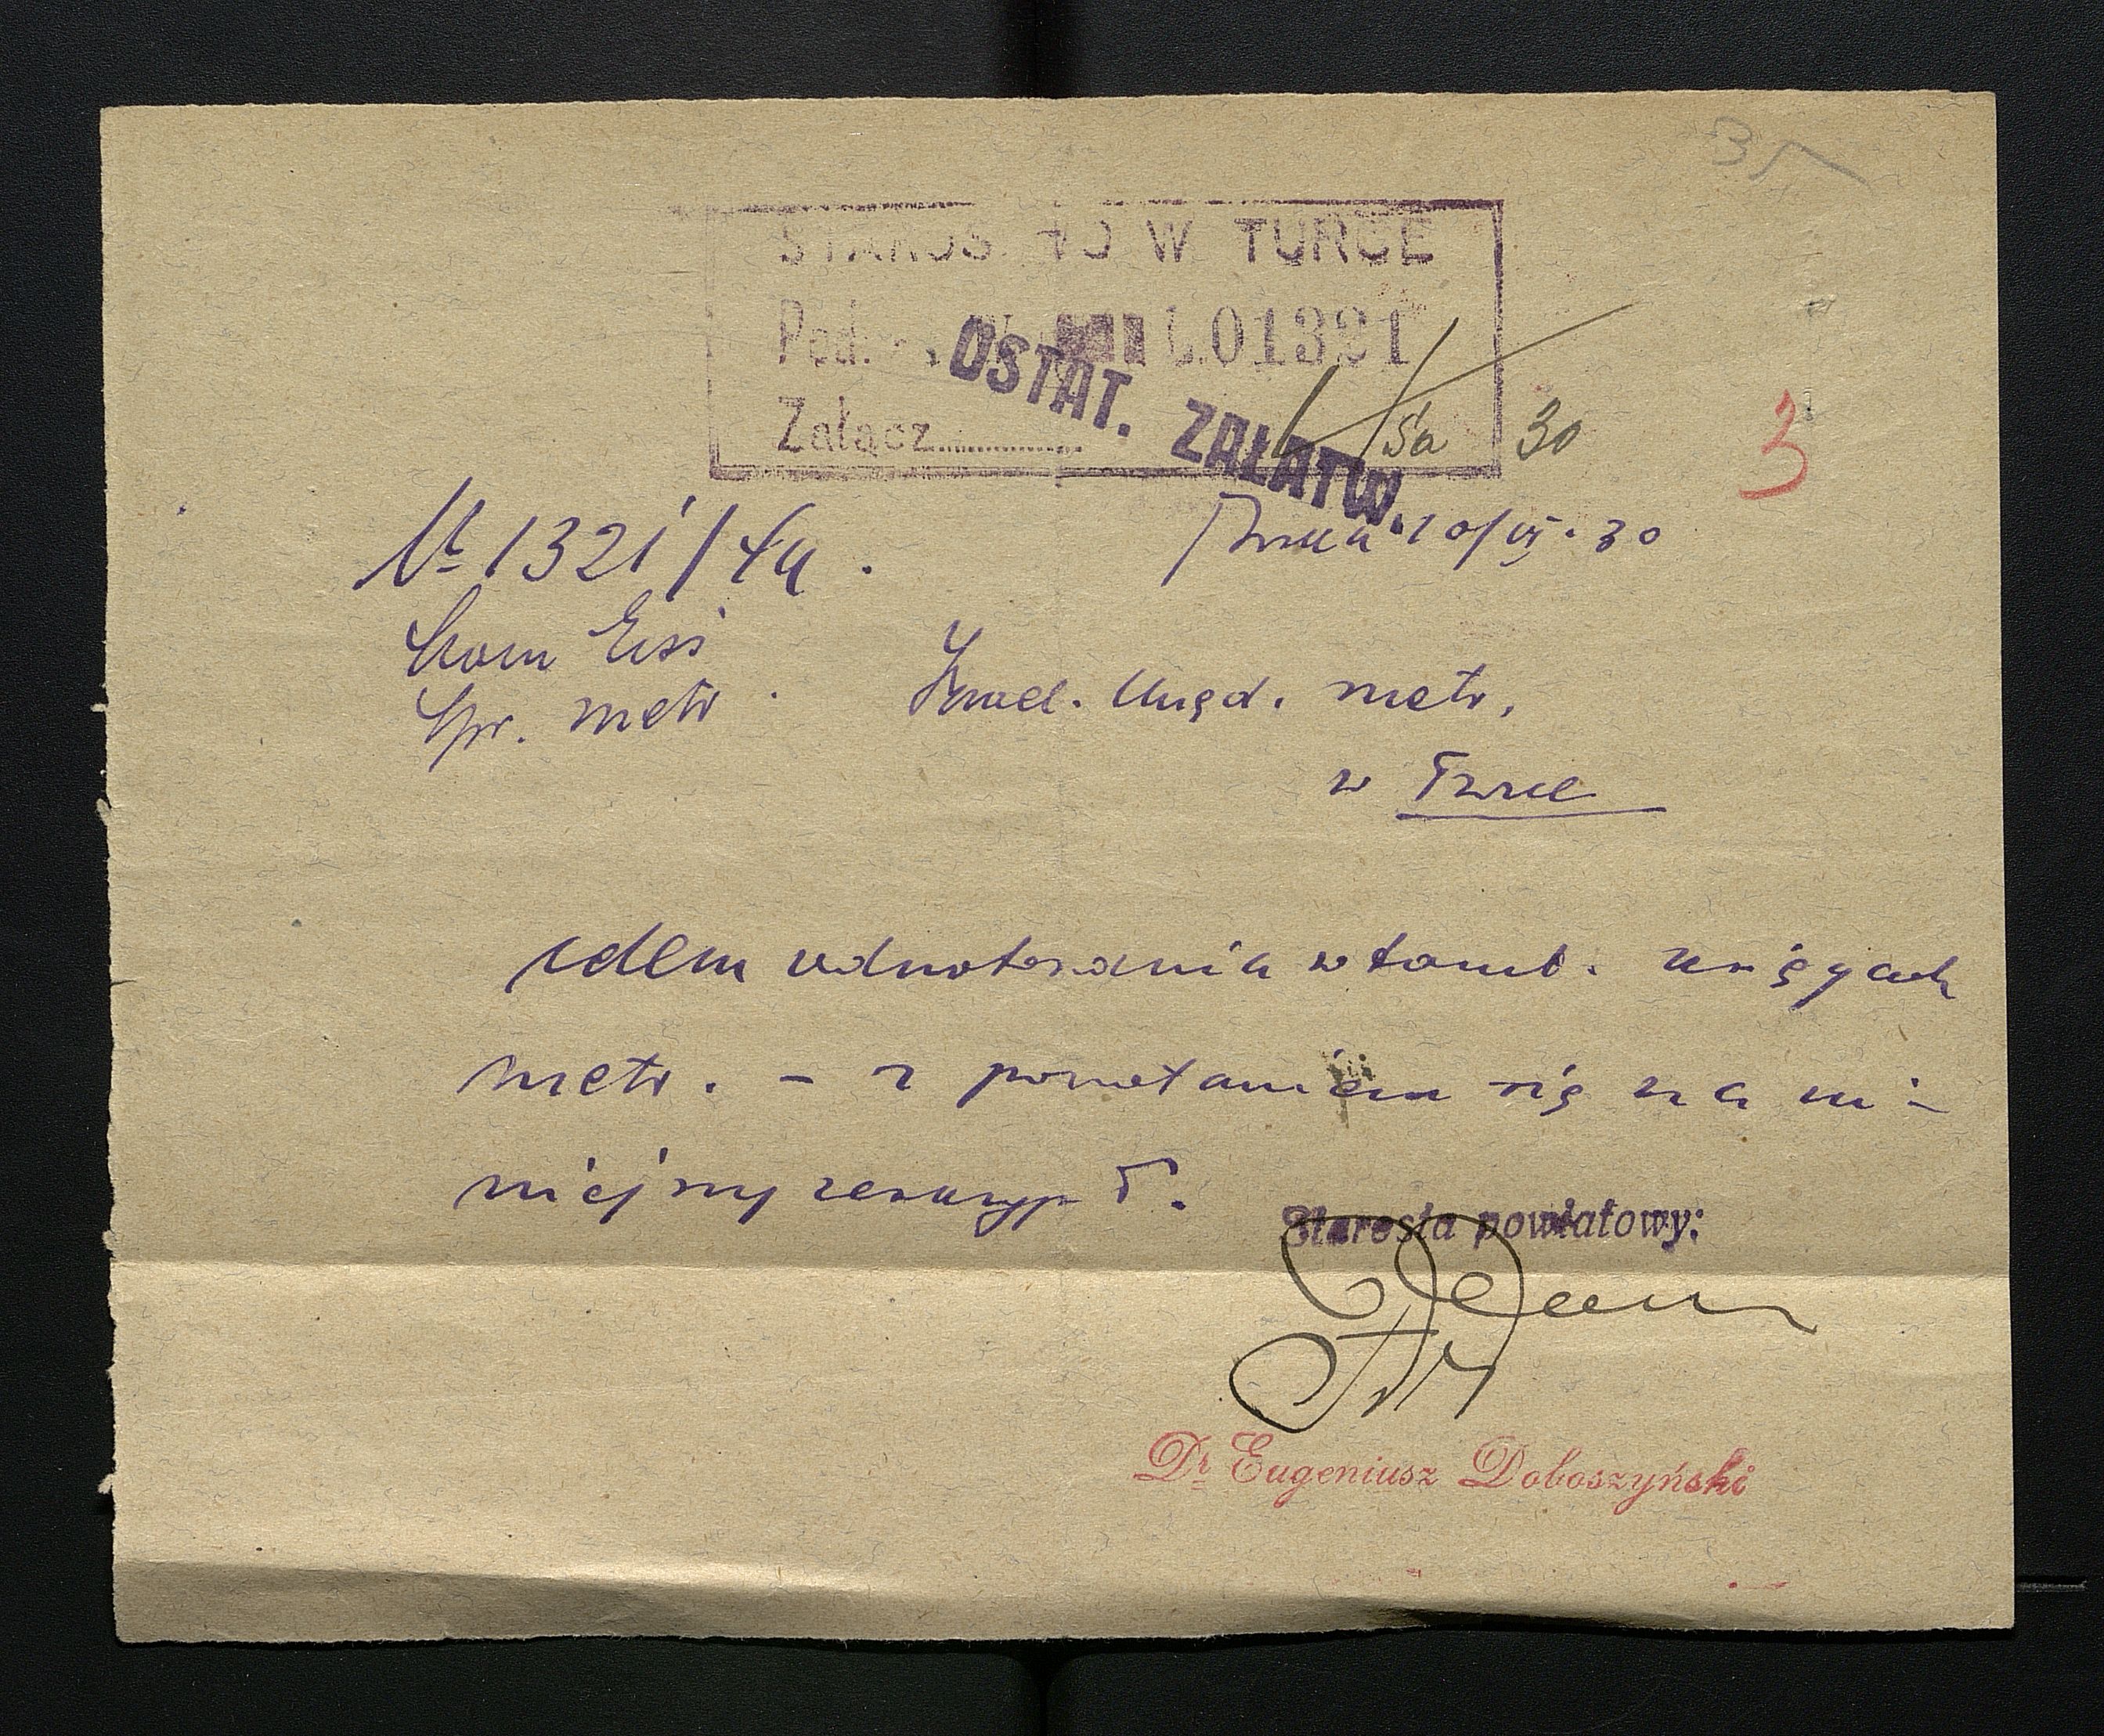 35
STAROSTWO W TURCE
Pod. L.01321
Załącz.
OSTAT. ZAŁATW.
30
3
№ 1321/4a.
Turka 10/VI. 30
Spr. metr.
Izrael. Urzęd. metr.
w Turce
celem odnotowania w tamt. księgach
metr. - z powołaniem się na ni-
niejszy reskrypt.
Starosta powiatowy:
Dr Eugeniusz Doboszyński